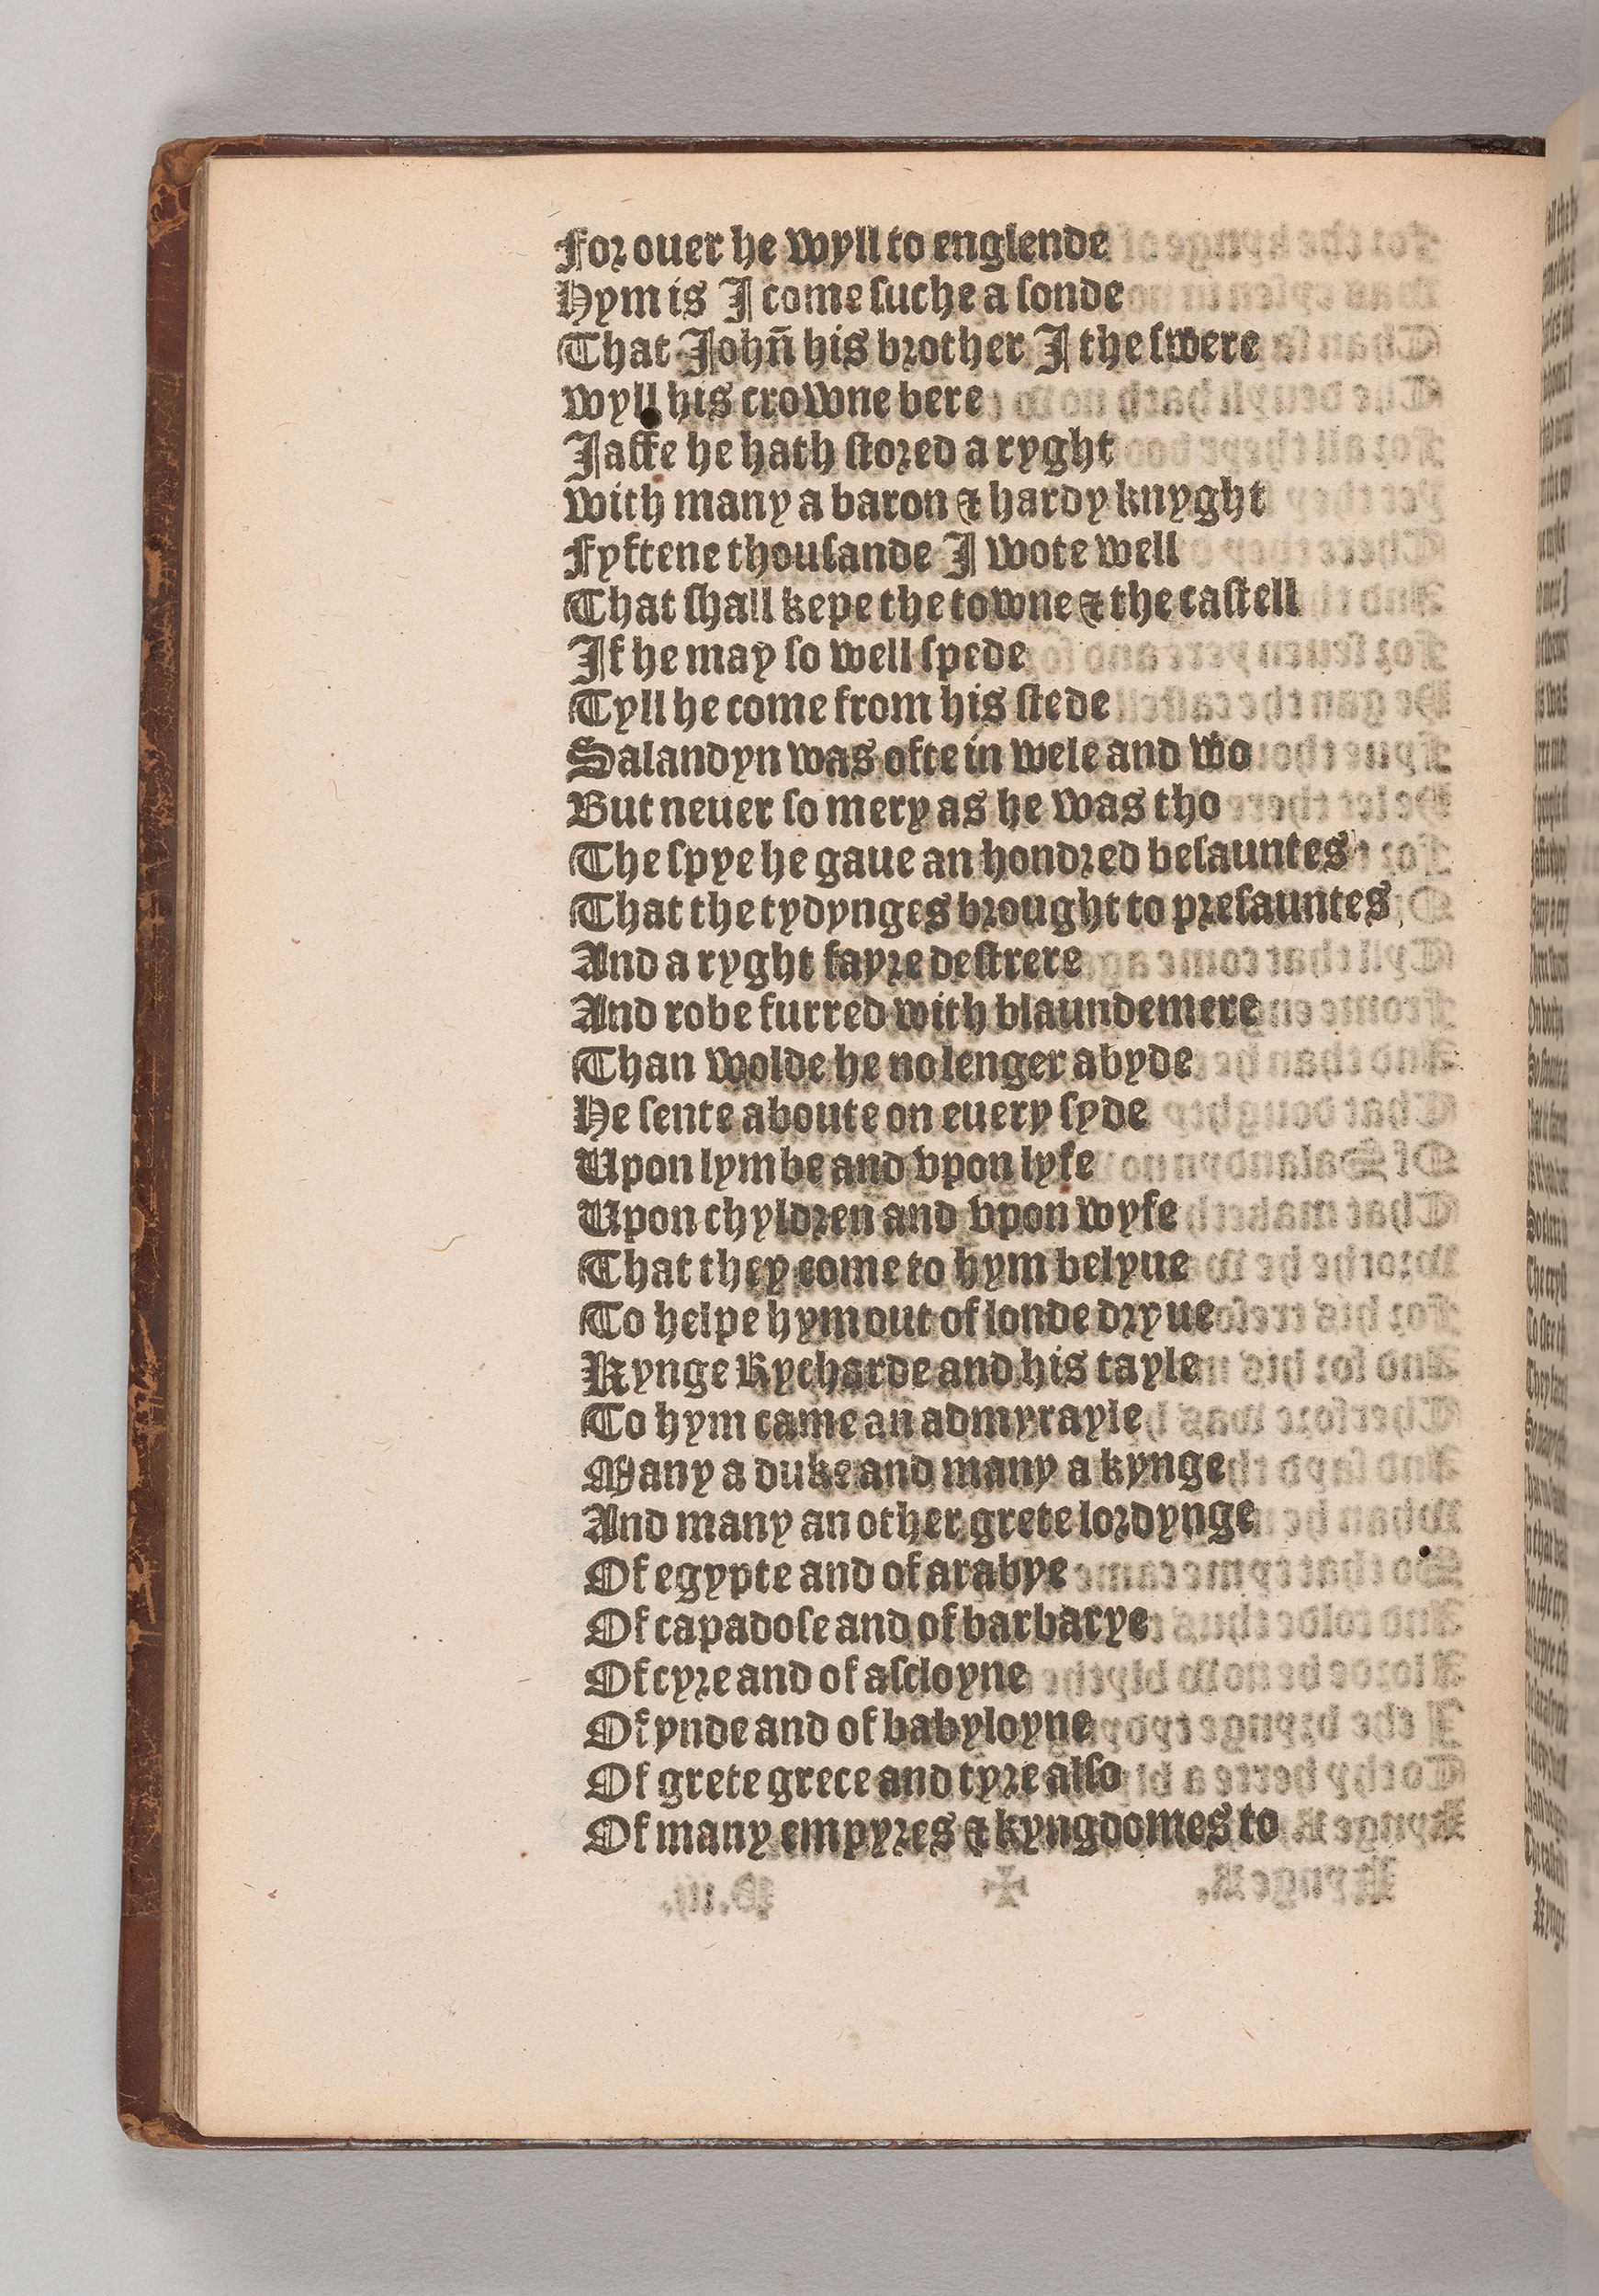 For ouer he wyll to englende
Hym is I come suche a sonde
That Johñ his brother I the swere
wyll his crowne bere
Jaffe he hath stored a ryght
with many a baron & hardy knyght
Fyftene thousande I wote well
That shall kepe the towne & the castell
If he may so well spede
Tyll he come from his stede
Salandyn was ofte in wele and wo
But neuer so mery as he was tho
The spye he gaue an hondred besauntes
That the tydynges brought to presauntes
And a ryght fayre destrere
And robe furred with blaundemere
Than wolde he no lenger abyde
He sente aboute on euery syde
Upon lymbe and vpon lyfe
Upon chyldren and vpon wyfe
That they come to hym belyue
To helpe hym out of londe dryue
Kynge Rycharde and his tayle
To hym came an admyrayle
Many a duke and many a kynge
And many an other grete lordynge
Of egypte and of arabye
Of capadose and of barbarye
Of tyre and of ascloyne
Of ynde and of babyloyne
Of grete grece and tyre also
Of many empyres & kyngdomes to